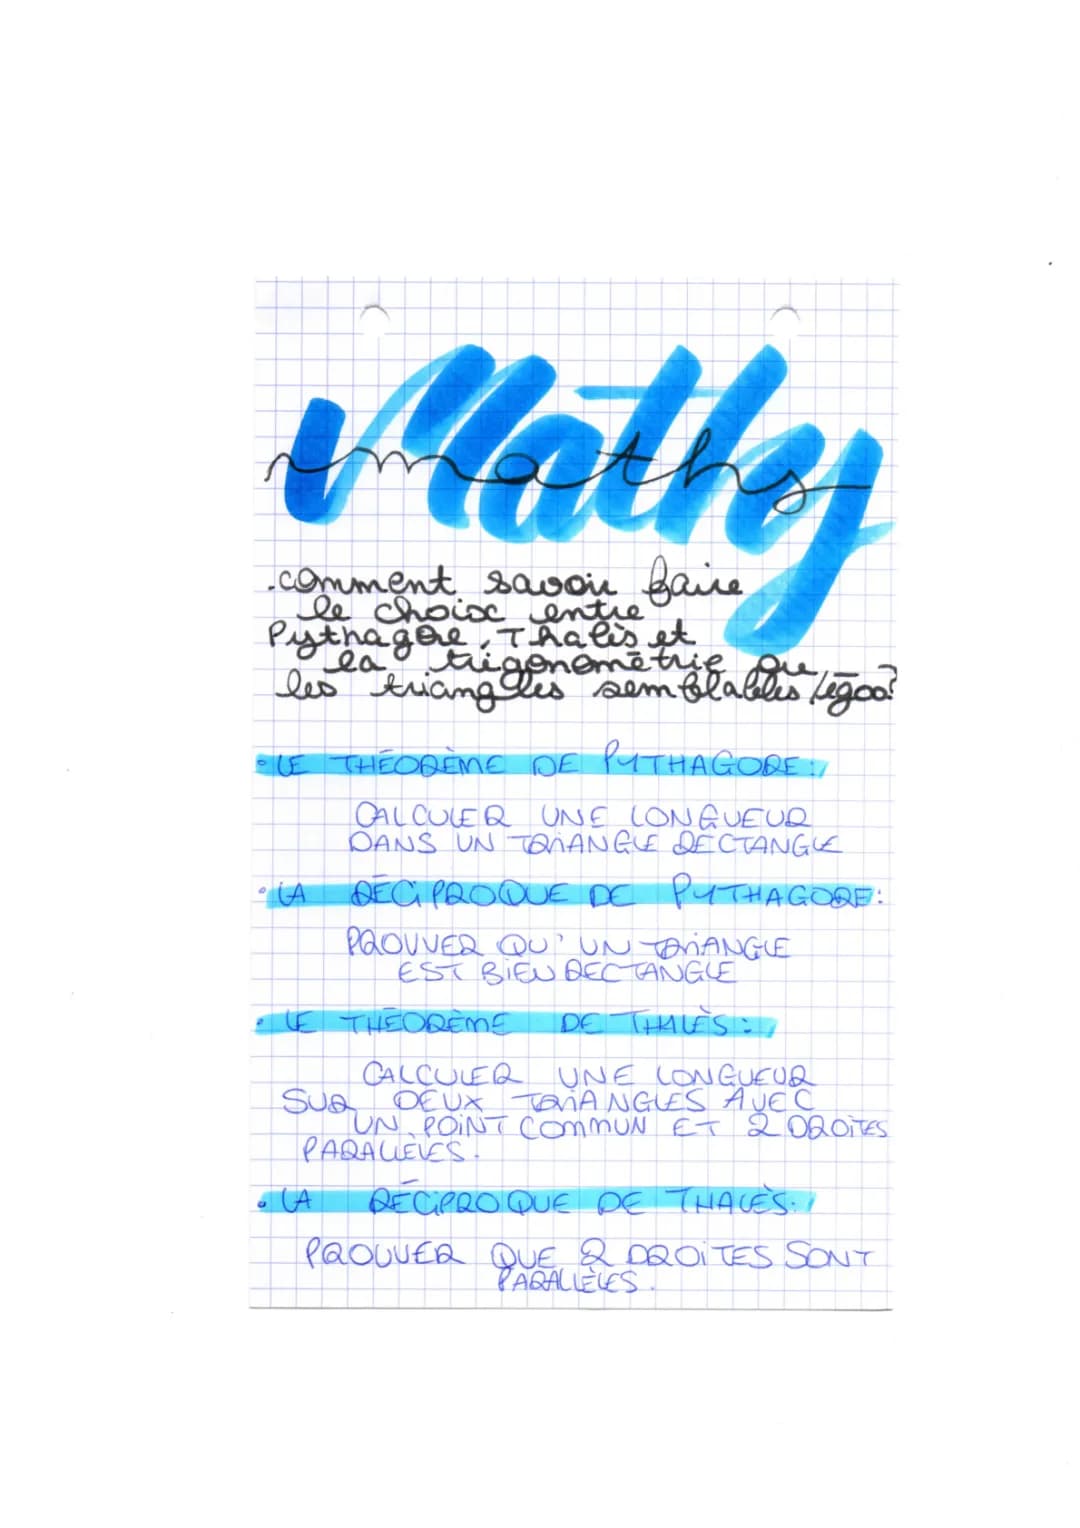 Maths
maths
.comment savoir faire
le choix entre
Pythagore, Thalès et
la trigonométrie ou
les triangles semblables / égaux?
• LE THÉORÈME DE PYTHAGORE:
CALCULER UNE LONGUEUR
DANS UN TRIANGLE RECTANGLE
• LA RÉCIPROQUE DE PYTHAGORE:
PROUVER QU'UN TRIANGLE
EST BIEN RECTANGLE
• LE THÉORÈME DE THALÈS:
CALCULER UNE LONGUEUR
SUR DEUX TRIANGLES AVEC
UN POINT COMMUN ET 2 DROITES
PARALLÈLES.
• LA RÉCIPROQUE DE THALÈS:
PROUVER QUE 2 DROITES SONT
PARALLÈLES.